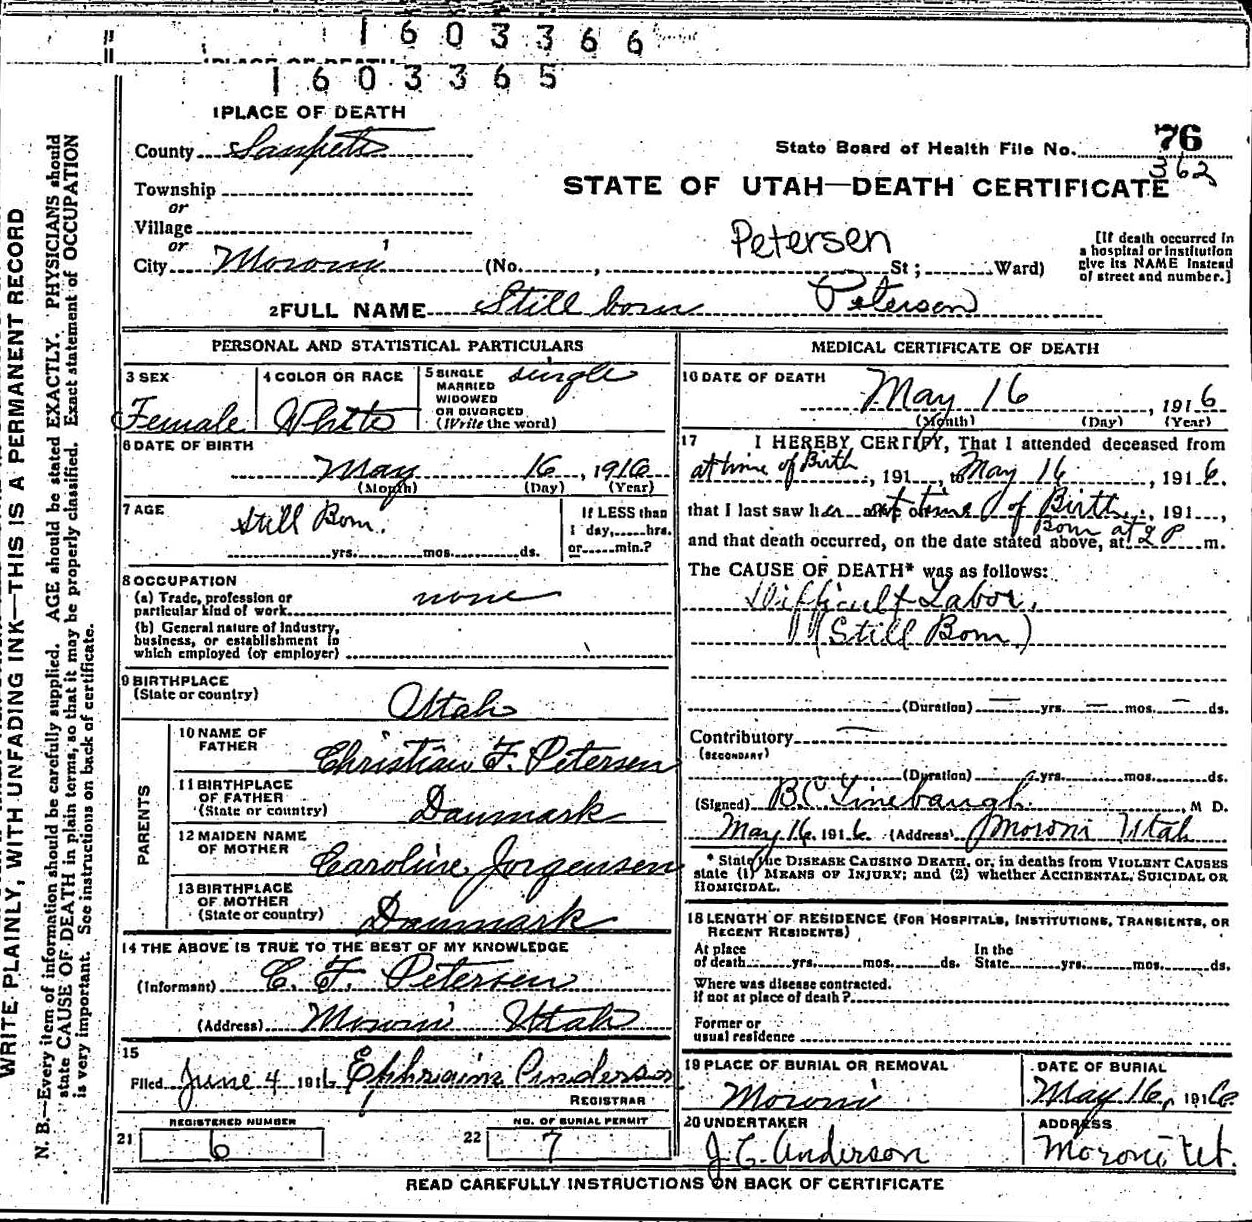 1603366
PLACE OF DEATH
1603365
1 PLACE OF DEATH
County Sanpete
State Board of Health File No. 76
362
Township
STATE OF UTAH—DEATH CERTIFICATE
or
Village
or
Petersen
City Moroni (No. , St ; Ward)
[If death occurred in
a hospital or institution
give its NAME instead
of street and number.]
2 FULL NAME Still born Peterson
PERSONAL AND STATISTICAL PARTICULARS
3 SEX
Female
4 COLOR OR RACE
White
5 SINGLE
MARRIED
WIDOWED
OR DIVORCED
(Write the word)
single
6 DATE OF BIRTH
May 16, 1916
(Month) (Day) (Year)
7 AGE
Still Born.
yrs. mos. ds.
If LESS than
1 day, hrs.
or min.?
8 OCCUPATION
(a) Trade, profession or
particular kind of work none
(b) General nature of industry,
business, or establishment in
which employed (or employer)
9 BIRTHPLACE
(State or country)
Utah
PARENTS
10 NAME OF
FATHER
Christian F. Petersen
11 BIRTHPLACE
OF FATHER
(State or country)
Danmark
12 MAIDEN NAME
OF MOTHER
Caroline Jorgensen
13 BIRTHPLACE
OF MOTHER
(State or country)
Danmark
14 THE ABOVE IS TRUE TO THE BEST OF MY KNOWLEDGE
(Informant) C. F. Petersen
(Address) Moroni Utah
15
Filed June 4 1916 Ephriam
REGISTRAR
REGISTERED NUMBER
21 6
NO. OF BURIAL PERMIT
22 7
MEDICAL CERTIFICATE OF DEATH
16 DATE OF DEATH
May 16, 1916
(Month) (Day) (Year)
17 I HEREBY CERTIFY, That I attended deceased from
at time of Birth, 191 , to May 16, 1916.
that I last saw her at time of Birth, 191 ,
and that death occurred, on the date stated above, at Born at 2 P m.
The CAUSE OF DEATH* was as follows:
Difficult Labor.
(Still Born)
(Duration) — yrs. — mos. — ds.
Contributory —
(SECONDARY)
(Duration) yrs. mos. ds.
(Signed) B.C. Linebaugh, M D.
May 16, 1916. (Address) Moroni Utah
* State the DISEASE CAUSING DEATH, or, in deaths from VIOLENT CAUSES
state (1) MEANS OF INJURY; and (2) whether ACCIDENTAL, SUICIDAL OR
HOMICIDAL.
18 LENGTH OF RESIDENCE (FOR HOSPITALS, INSTITUTIONS, TRANSIENTS, OR
RECENT RESIDENTS)
At place
of death yrs. mos. ds.
In the
State yrs. mos. ds.
Where was disease contracted.
if not at place of death?
Former or
usual residence
19 PLACE OF BURIAL OR REMOVAL
Moroni
DATE OF BURIAL
May 16, 1916
20 UNDERTAKER
J. C. Anderson
ADDRESS
Moroni, Ut.
READ CAREFULLY INSTRUCTIONS ON BACK OF CERTIFICATE
WRITE PLAINLY, WITH UNFADING INK—THIS IS A PERMANENT RECORD
N. B.—Every item of information should be carefully supplied. AGE should be stated EXACTLY. PHYSICIANS should
state CAUSE OF DEATH in plain terms, so that it may be properly classified. Exact statement of OCCUPATION
is very important. See instructions on back of certificate.